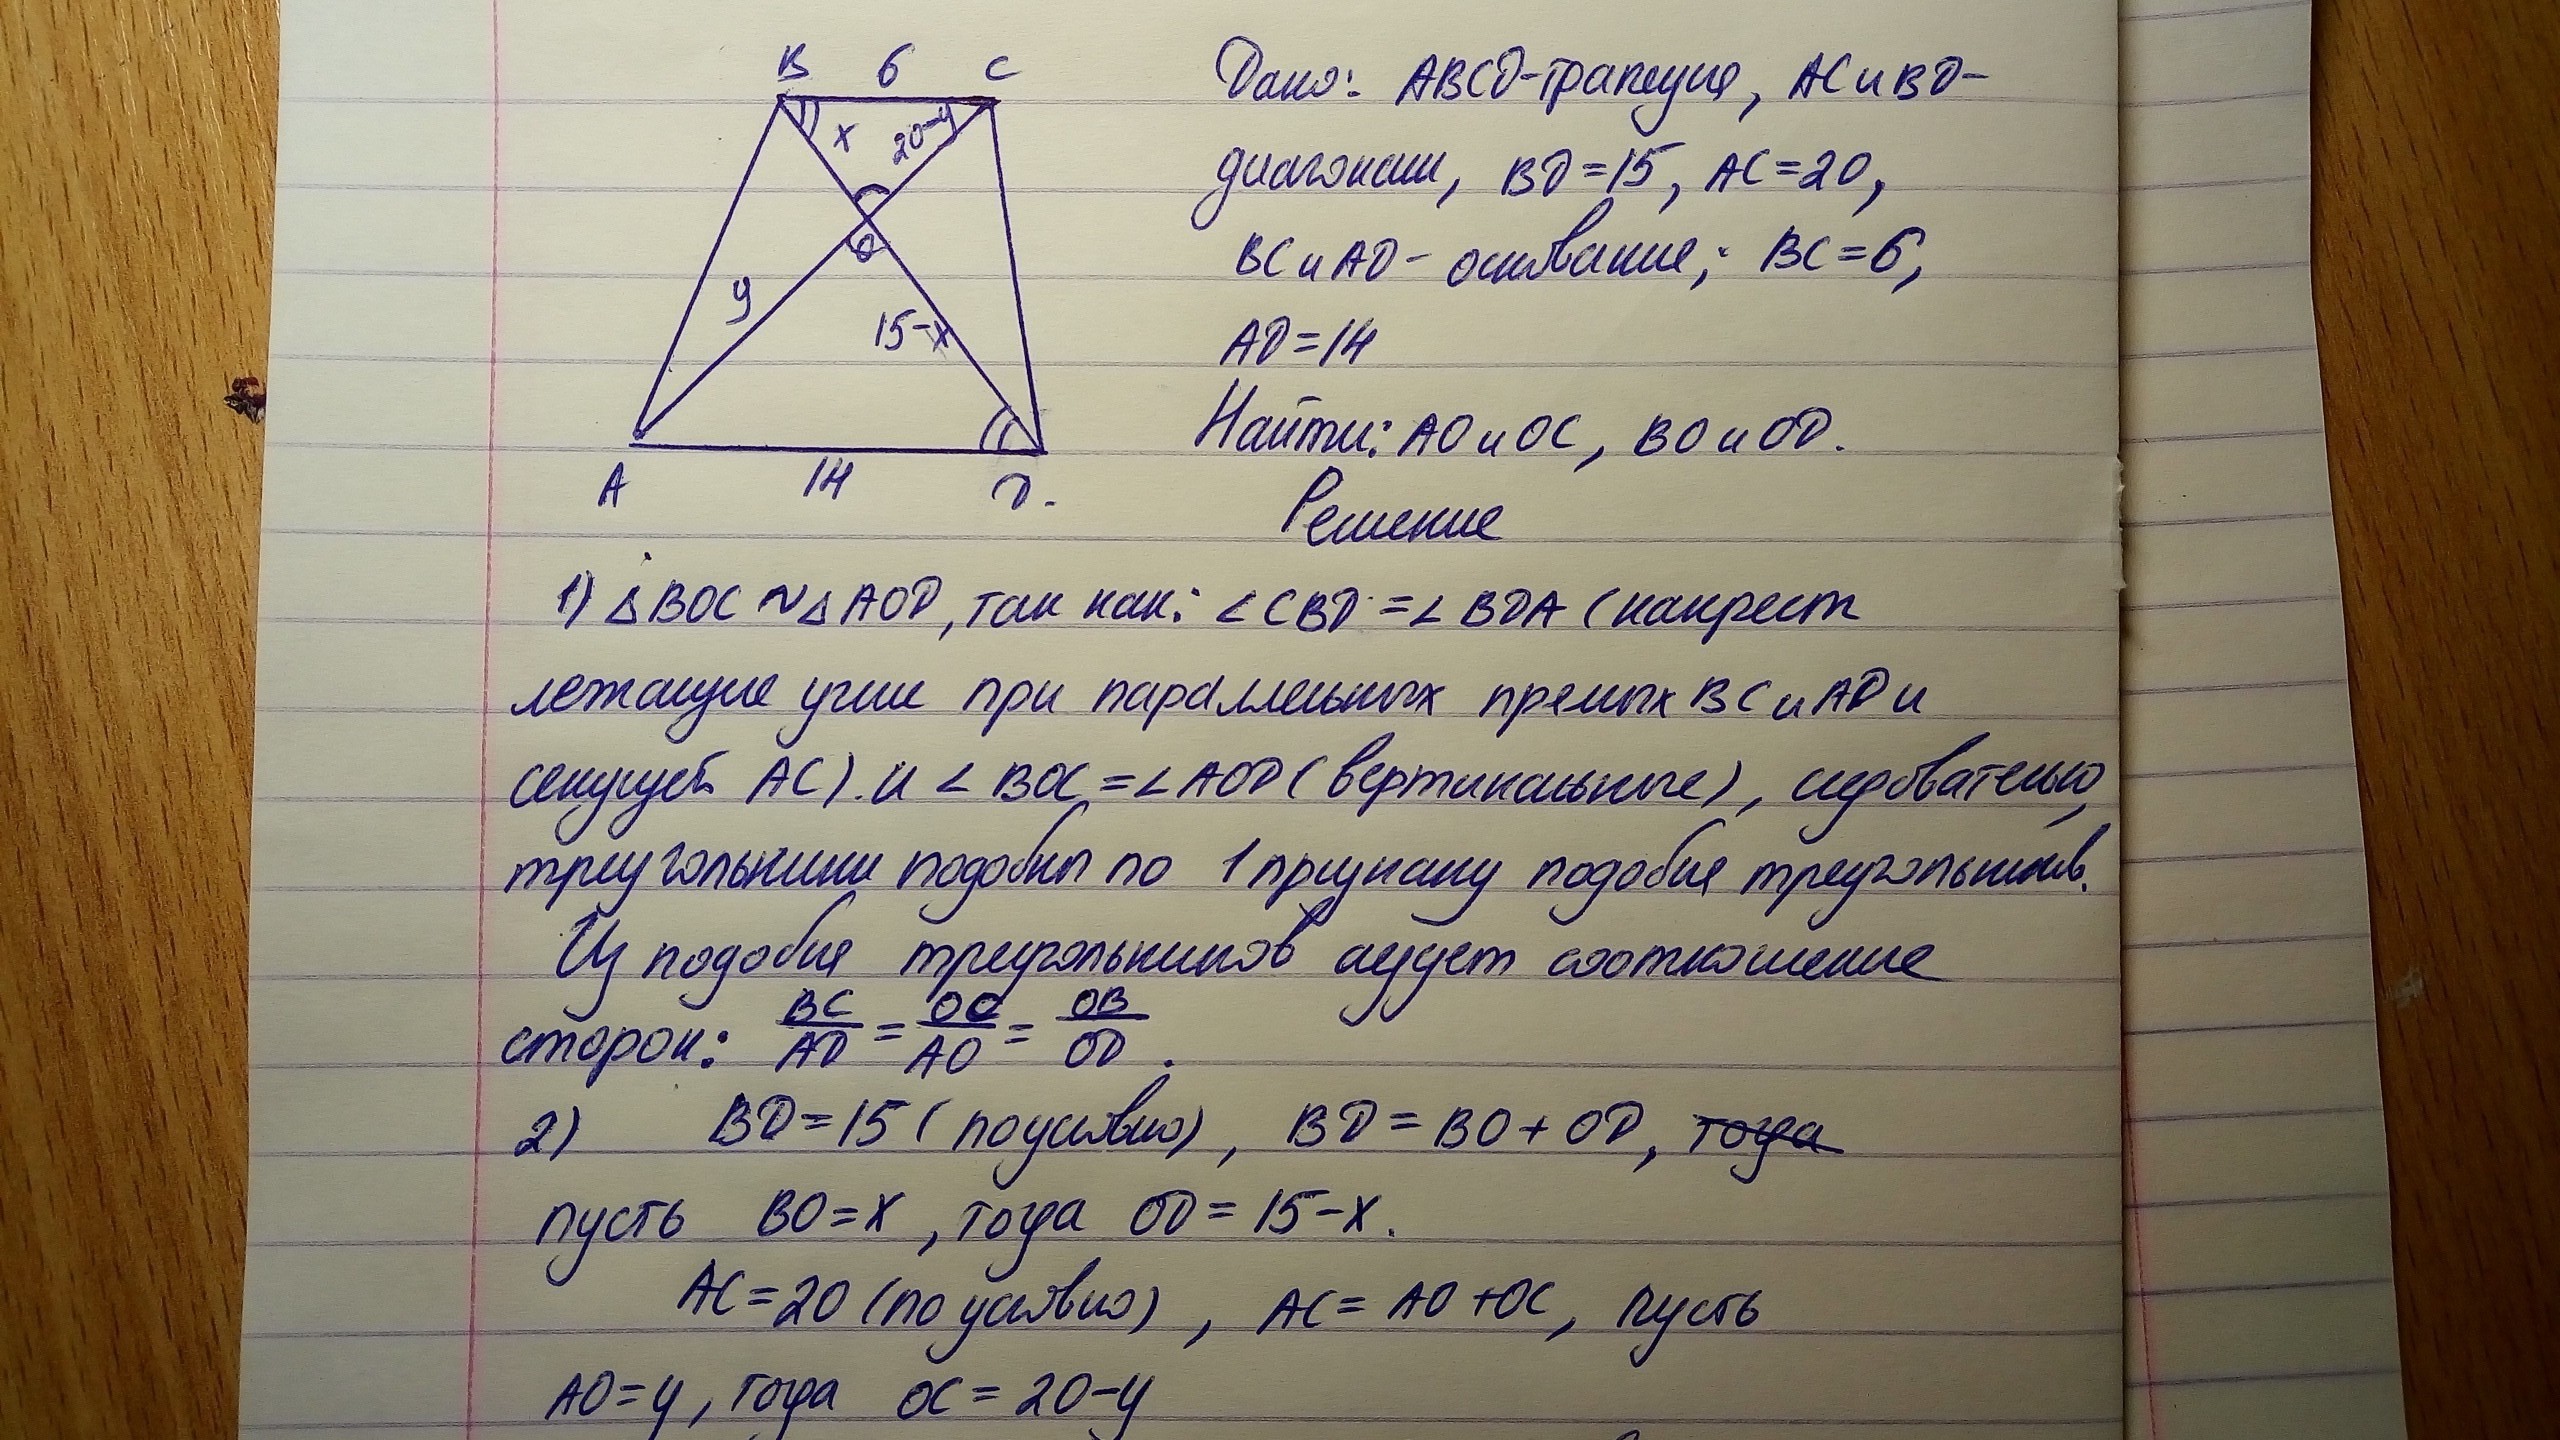 B 6 C
x 20-y
O
y
15-x
A 14 D.
Дано: ABCD-трапеция, AC и BD-
диагонали, BD=15, AC=20,
BC и AD- основание; BC=6,
AD=14
Найти: AO и OC, BO и OD.
Решение
1) △BOC ~ △AOD, так как: ∠CBD =∠BDA (накрест
лежащие углы при параллельных прямых BC и AD и
секущей AC). и ∠BOC =∠AOD (вертикальные), следовательно,
треугольники подобны по 1 признаку подобия треугольников.
Из подобия треугольников следует соотношение
сторон: BC/AD = OC/AO = OB/OD.
2) BD=15 (по условию), BD = BO + OD, тогда
пусть BO=x, тогда OD = 15-x.
AC=20 (по условию), AC= AO+OC, пусть
AO=y, тогда OC = 20-y